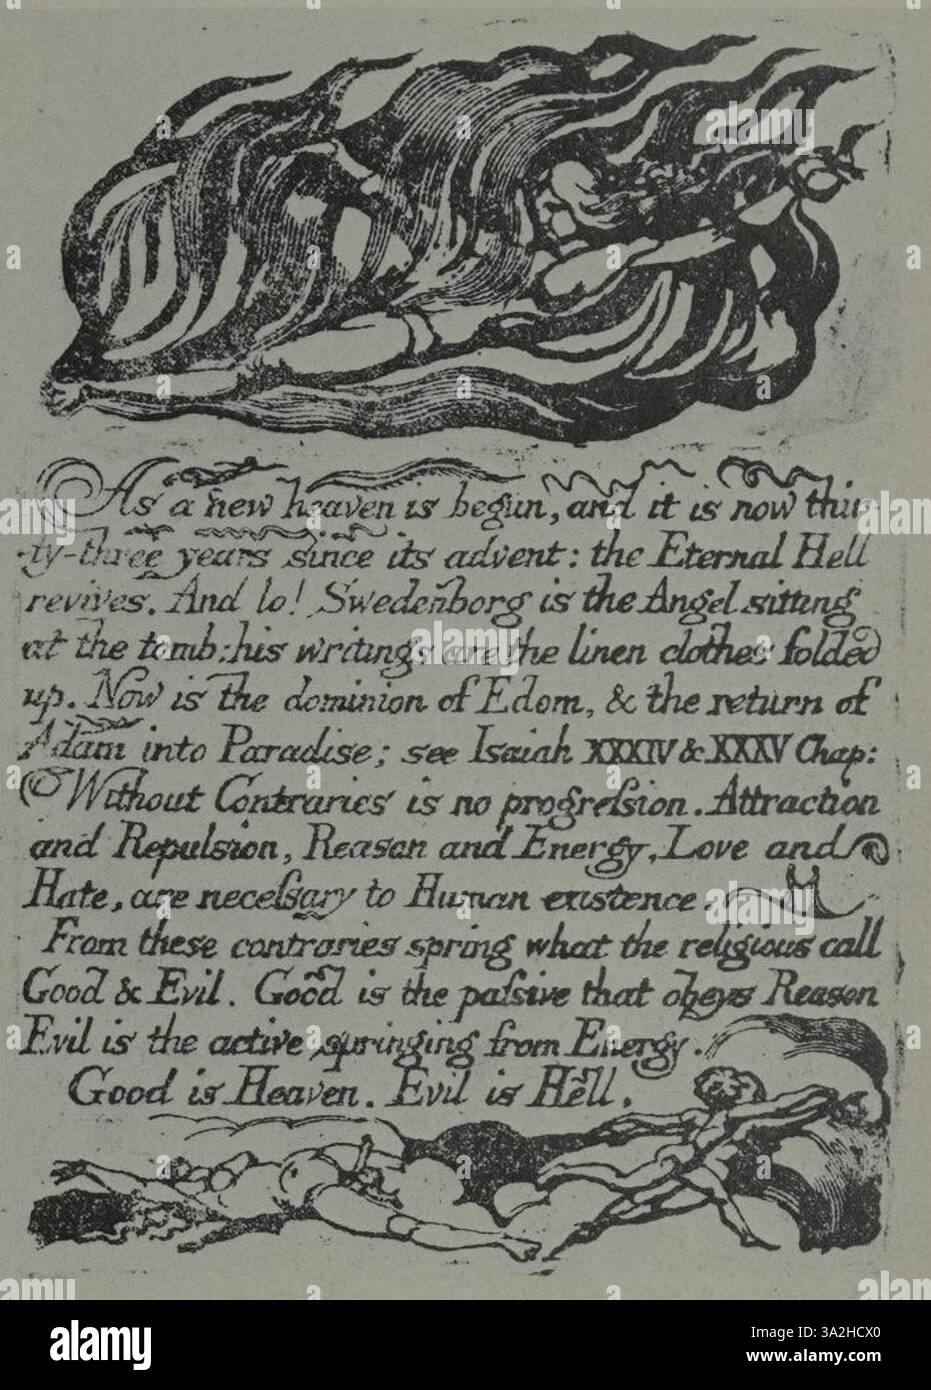 As a new heaven is begun, and it is now thir-
ty-three years since its advent: the Eternal Hell
revives. And lo! Swedenborg is the Angel sitting
at the tomb: his writings are the linen clothes folded
up. Now is the dominion of Edom, & the return of
Adam into Paradise; see Isaiah XXXIV & XXXV Chap:
Without Contraries is no progreſsion. Attraction
and Repulsion, Reason and Energy, Love and
Hate, are neceſsary to Human existence.
From these contraries spring what the religious call
Good & Evil. Good is the paſsive that obeys Reason
Evil is the active springing from Energy.
Good is Heaven. Evil is Hell.
alamy
alamy
Image ID: 3A2HCX0
www.alamy.com